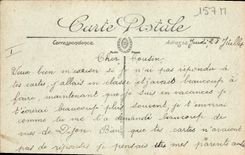 157M
Carte Postale
Correspondance. Adresse Jeudi 28 Juillet
Cher Cousin
Vous bien m'excuser si je n'ai pas répondu à
tes cartes, j'allais en classe et j'avais beaucoup à
faire, maintenant que je suis en vacances je
t'écrirai beaucoup plus souvent, je t'envoie
comme tu me l'a demandé beaucoup de
vues de Dijon. Bien que tes cartes n'avaient
pas de réponse je pensais mes parents